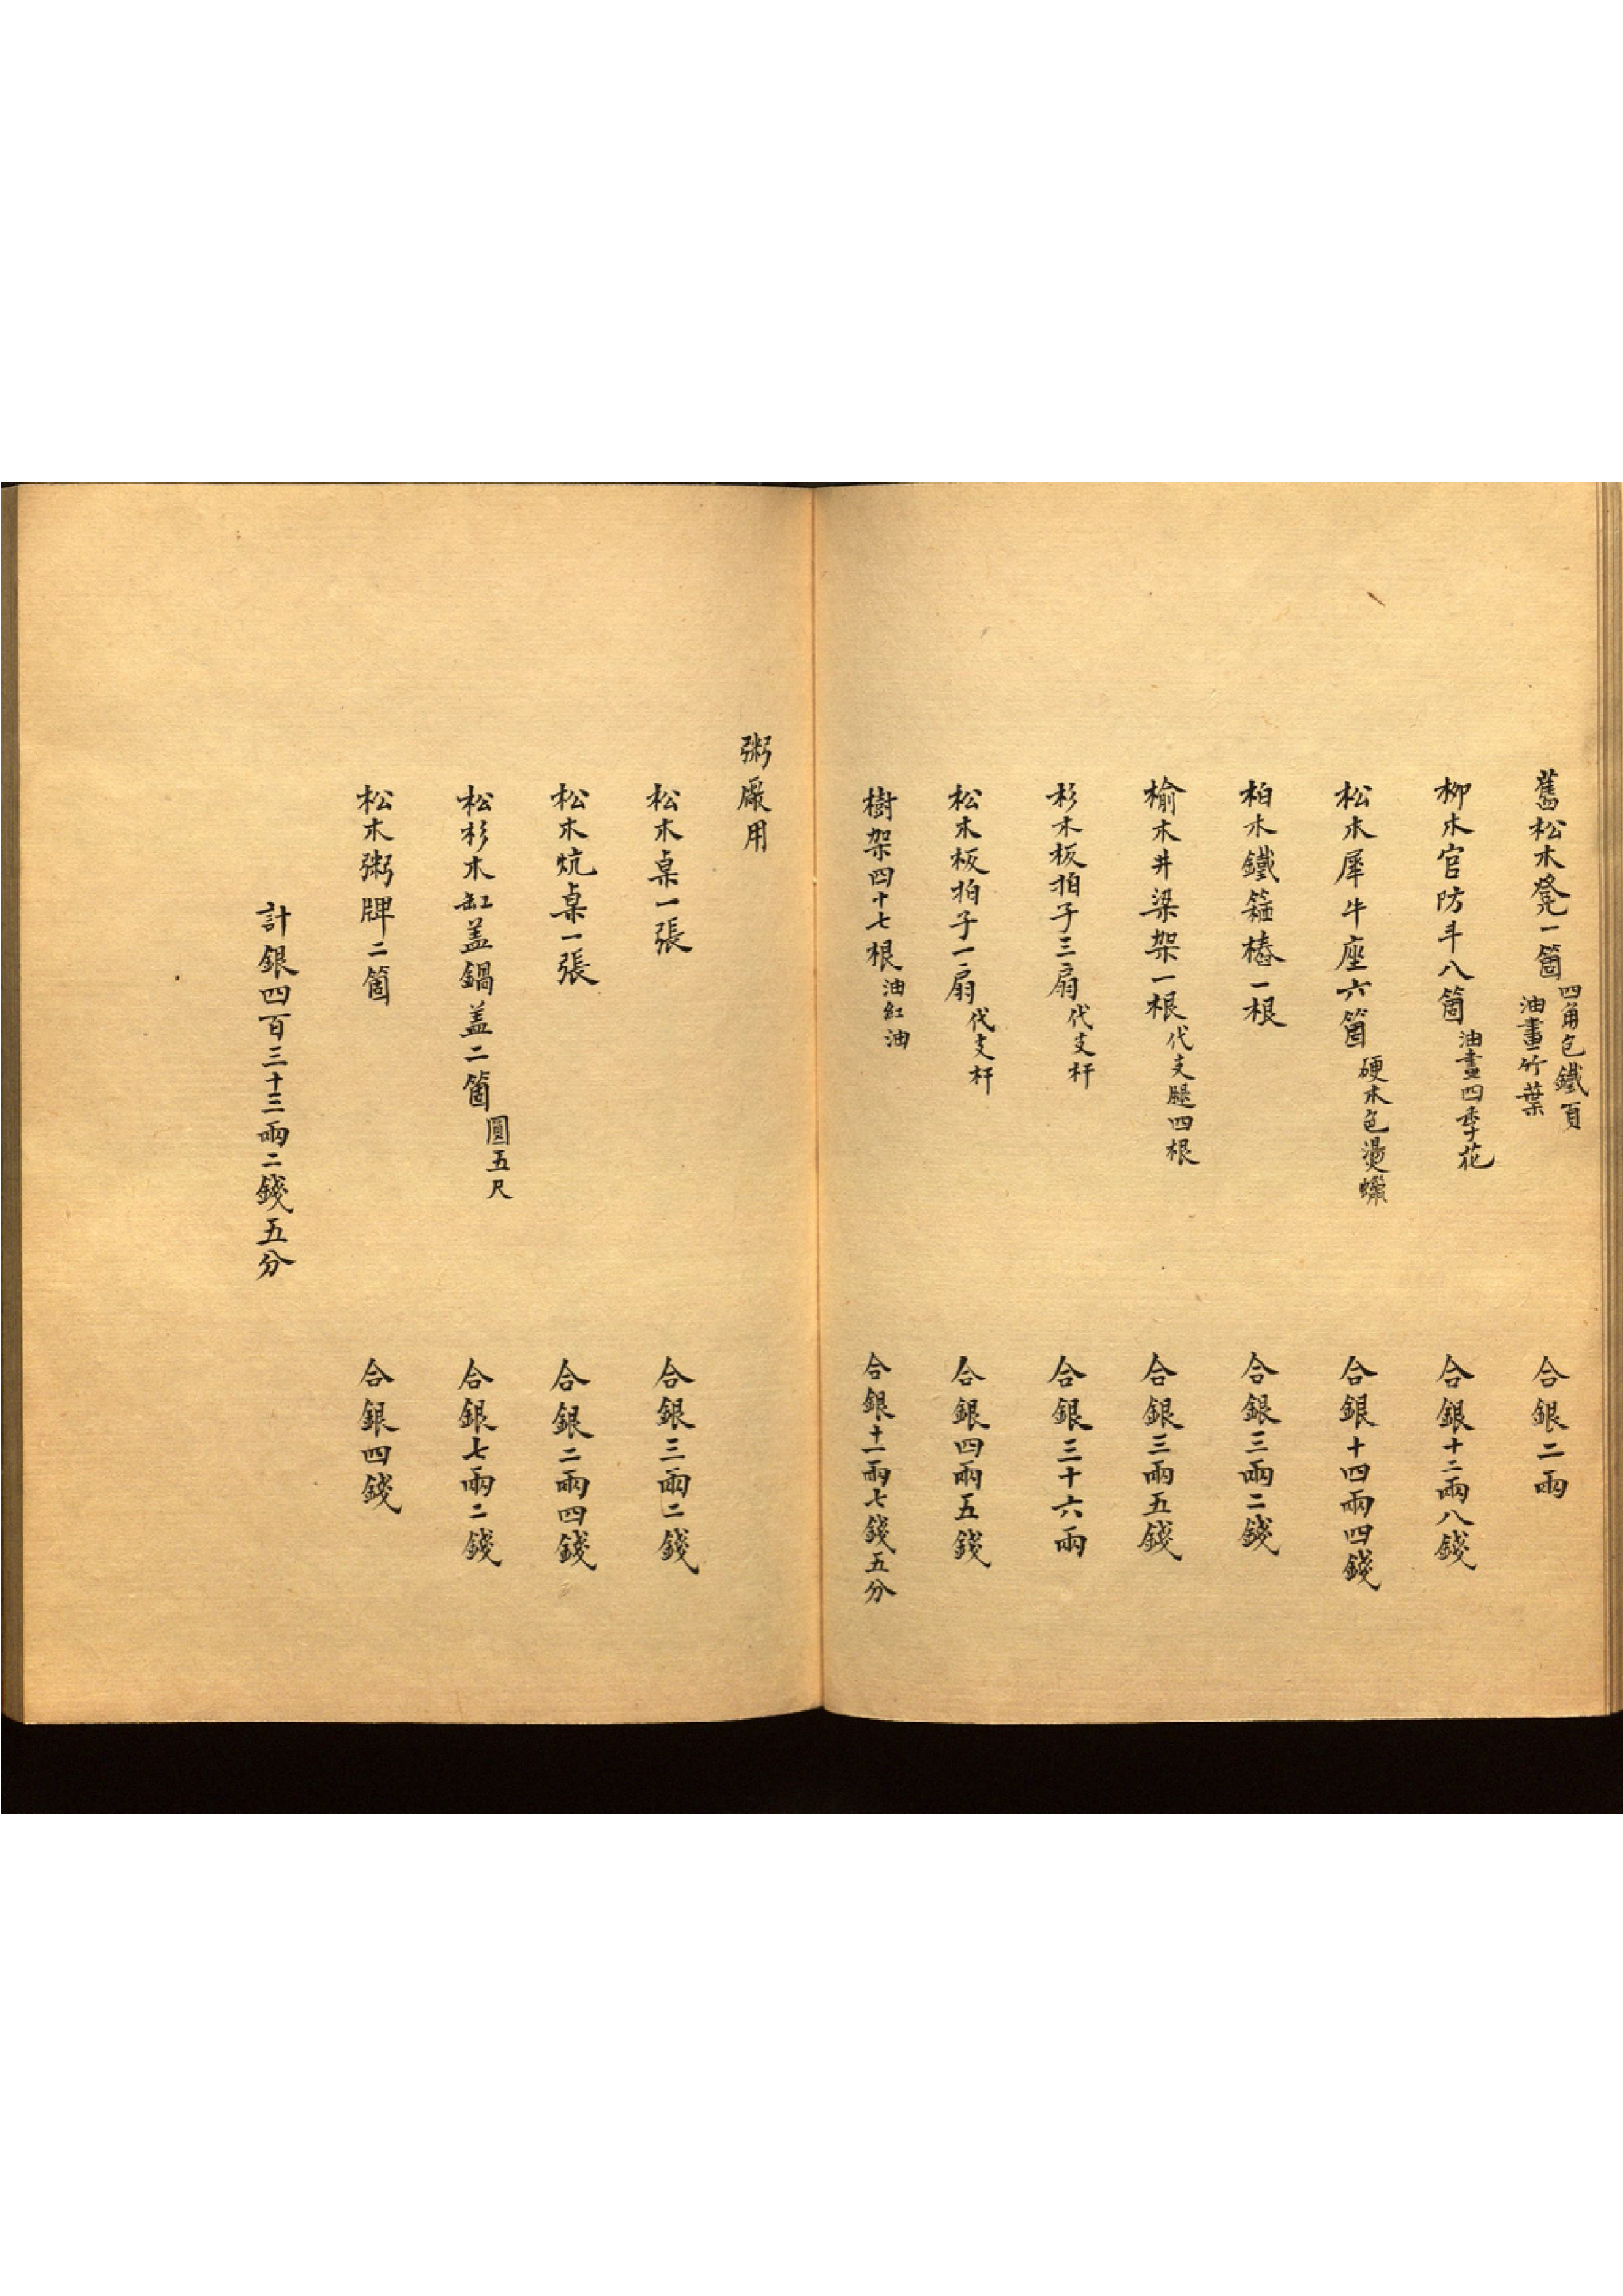 舊松木凳一箇 四角包鐵頁 油畫竹葉 合銀二兩
柳木官防斗八箇 油畫四季花 合銀十二兩八錢
松木犀牛座六箇 硬木色燙蠟 合銀十四兩四錢
柏木鐵箍樁一根 合銀三兩二錢
榆木井梁架一根 代支腿四根 合銀三兩五錢
杉木板拍子三扇 代支杆 合銀三十六兩
松木板拍子一扇 代支杆 合銀四兩五錢
樹架四十七根 油紅油 合銀十一兩七錢五分
粥廠用
松木桌一張 合銀三兩二錢
松木炕桌一張 合銀二兩四錢
松杉木缸盖鍋盖二箇 圓五尺 合銀七兩二錢
松木粥牌二箇 合銀四錢
計銀四百三十三兩二錢五分